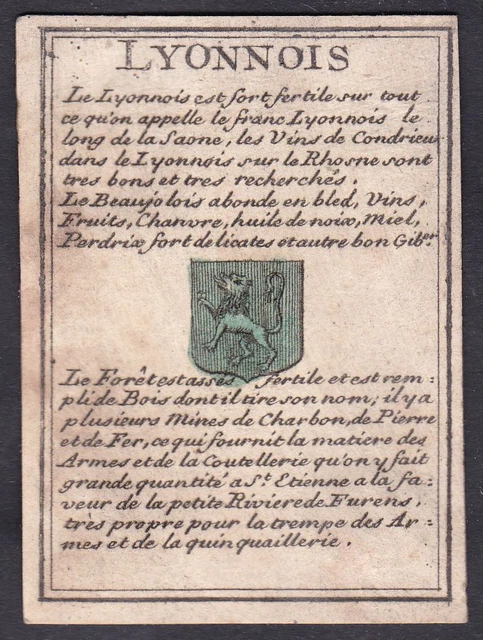 LYONNOIS
Le Lyonnois est fort fertile sur tout
ce qu'on appelle le franc Lyonnois le
long de la Saone, les Vins de Condrieux
dans le Lyonnois sur le Rhosne sont
tres bons et tres recherchés.
Le Beaujolois abonde en bled, Vins,
Fruits, Chanvre, huile de noix, Miel,
Perdrix fort delicates et autre bon Gibier
Le Forêt est assés fertile et est rem=
pli de Bois dont il tire son nom; il y a
plusieurs Mines de Charbon, de Pierre
et de Fer, ce qui fournit la matiere des
Armes et de la Coutellerie qu'on y fait
grande quantité a St. Etienne a la fa=
veur de la petite Riviere de Furens,
très propre pour la trempe des Ar=
mes et de la quinquaillerie.